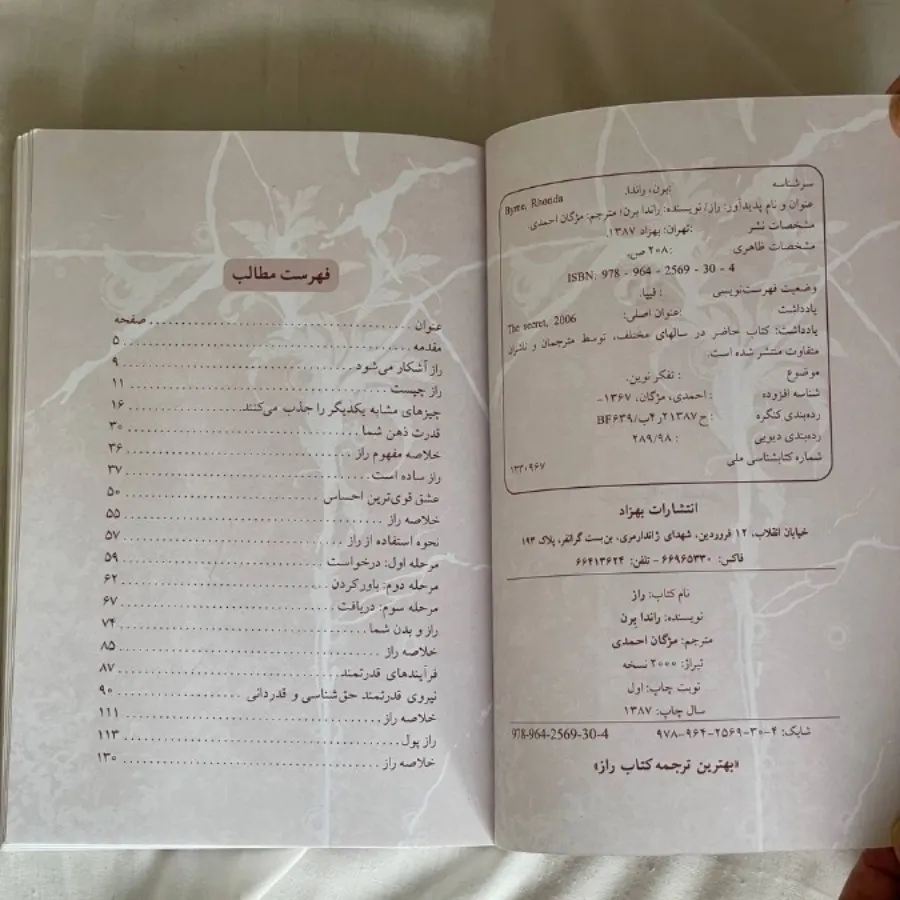 سرشناسه : برن، راندا. Byrne, Rhonda
عنوان و نام پدیدآور: راز/ نویسنده: راندا برن؛ مترجم: مژگان احمدی.
مشخصات نشر : تهران: بهزاد ۱۳۸۷.
مشخصات ظاهری : ۲۰۸ ص.
ISBN: 978 - 964 - 2569 - 30 - 4
وضعیت فهرست‌نویسی : فیپا.
یادداشت : عنوان اصلی: The secret, 2006
یادداشت: کتاب حاضر در سالهای مختلف، توسط مترجمان و ناشران
متفاوت منتشر شده است.
موضوع : تفکر نوین.
شناسه افزوده : احمدی، مژگان، ۱۳۶۷-
رده‌بندی کنگره : ۱۳۸۷ ۲ر۴ب/BF۶۳۹
رده‌بندی دیویی : ۲۸۹/۹۸
شماره کتابشناسی ملی ۱۲۳۰۹۶۷
انتشارات بهزاد
خیابان انقلاب، ۱۲ فروردین، شهدای ژاندارمری، بن‌بست گرانفر، پلاک ۱۹۳
فاکس: ۶۶۹۶۵۳۳۰ - تلفن: ۶۶۴۱۳۶۲۴
نام کتاب: راز
نویسنده: راندا بِرن
مترجم: مژگان احمدی
تیراژ: ۲۰۰۰ نسخه
نوبت چاپ: اول
سال چاپ: ۱۳۸۷
شابک: ۴-۳۰-۲۵۶۹-۹۶۴-۹۷۸ 978-964-2569-30-4
«بهترین ترجمه کتاب راز»
فهرست مطالب
عنوان ... صفحه
مقدمه ... ۵
راز آشکار می‌شود ... ۹
راز چیست ... ۱۱
چیزهای مشابه یکدیگر را جذب می‌کنند ... ۱۶
قدرت ذهن شما ... ۳۰
خلاصه مفهوم راز ... ۳۶
راز ساده است ... ۳۷
عشق قوی‌ترین احساس ... ۵۰
خلاصه راز ... ۵۵
نحوه استفاده از راز ... ۵۷
مرحله اول: درخواست ... ۵۹
مرحله دوم: باور کردن ... ۶۲
مرحله سوم: دریافت ... ۶۷
راز و بدن شما ... ۷۴
خلاصه راز ... ۸۵
فرآیندهای قدرتمند ... ۸۷
نیروی قدرتمند حق‌شناسی و قدردانی ... ۹۰
خلاصه راز ... ۱۱۱
راز پول ... ۱۱۳
خلاصه راز ... ۱۳۰